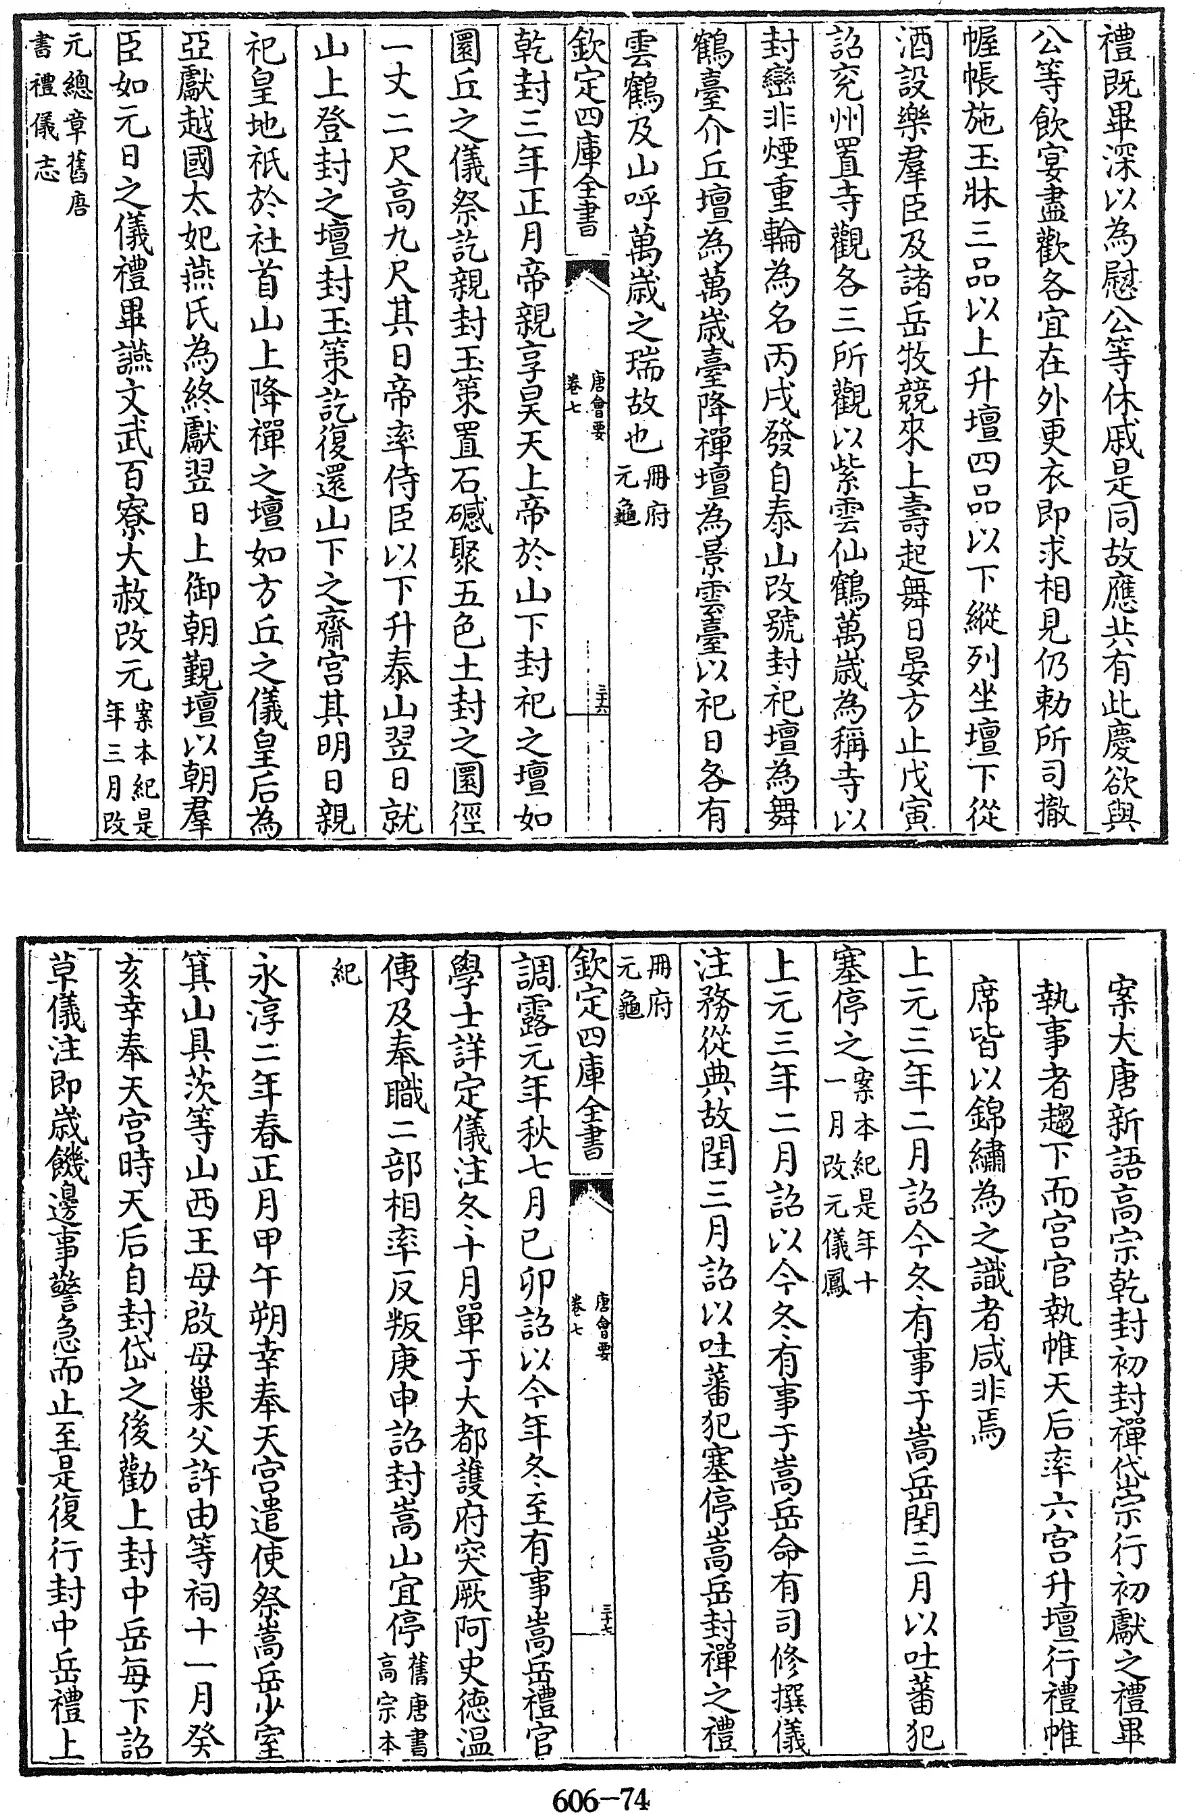 禮既畢深以為慰公等休戚是同故應共有此慶欲與
公等飲宴盡歡各宜在外更衣即求相見仍勅所司撤
幄帳施玉牀三品以上升壇四品以下縱列坐壇下從
酒設樂羣臣及諸岳牧競來上壽起舞日晏方止戊寅
詔兖州置寺觀各三所觀以紫雲仙鶴萬歳為稱寺以
封巒非煙重輪為名丙戌發自泰山改號封祀壇為舞
鶴臺介丘壇為萬歳臺降禪壇為景雲臺以祀日各有
雲鶴及山呼萬歳之瑞故也冊府
元龜
欽定四庫全書
唐會要
卷七
三十六
乾封三年正月帝親享昊天上帝於山下封祀之壇如
圜丘之儀祭訖親封玉策置石䃭聚五色土封之圜徑
一丈二尺高九尺其日帝率侍臣以下升泰山翌日就
山上登封之壇封玉策訖復還山下之齋宫其明日親
祀皇地祇於社首山上降禪之壇如方丘之儀皇后為
亞獻越國太妃燕氏為終獻翌日上御朝覲壇以朝羣
臣如元日之儀禮畢讌文武百寮大赦改元案本紀是
年三月改
元總章舊唐
書禮儀志
案大唐新語高宗乾封初封禪岱宗行初獻之禮畢
執事者趨下而宫官執帷天后率六宫升壇行禮帷
席皆以錦繡為之識者咸非焉
上元三年二月詔今冬有事于嵩岳閏三月以吐蕃犯
塞停之案本紀是年十
一月改元儀鳳
上元三年二月詔以今冬有事于嵩岳命有司修撰儀
注務從典故閏三月詔以吐蕃犯塞停嵩岳封禪之禮
冊府
元龜
欽定四庫全書
唐會要
卷七
三十七
調露元年秋七月己卯詔以今年冬至有事嵩岳禮官
學士詳定儀注冬十月單于大都護府突厥阿史徳温
傅及奉職二部相率反叛庚申詔封嵩山宜停舊唐書
高宗本
紀
永淳二年春正月甲午朔幸奉天宫遣使祭嵩岳少室
箕山具茨等山西王母啟母巢父許由等祠十一月癸
亥幸奉天宫時天后自封岱之後勸上封中岳每下詔
草儀注即歳饑邊事警急而止至是復行封中岳禮上
606-74